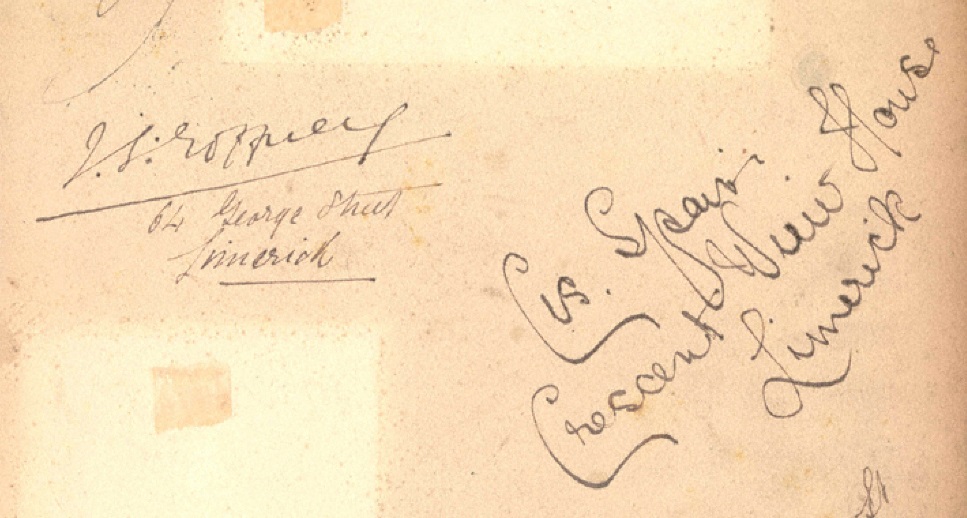 64 George Street
Limerick
Cis. Spain
Crescent View House
Limerick
St